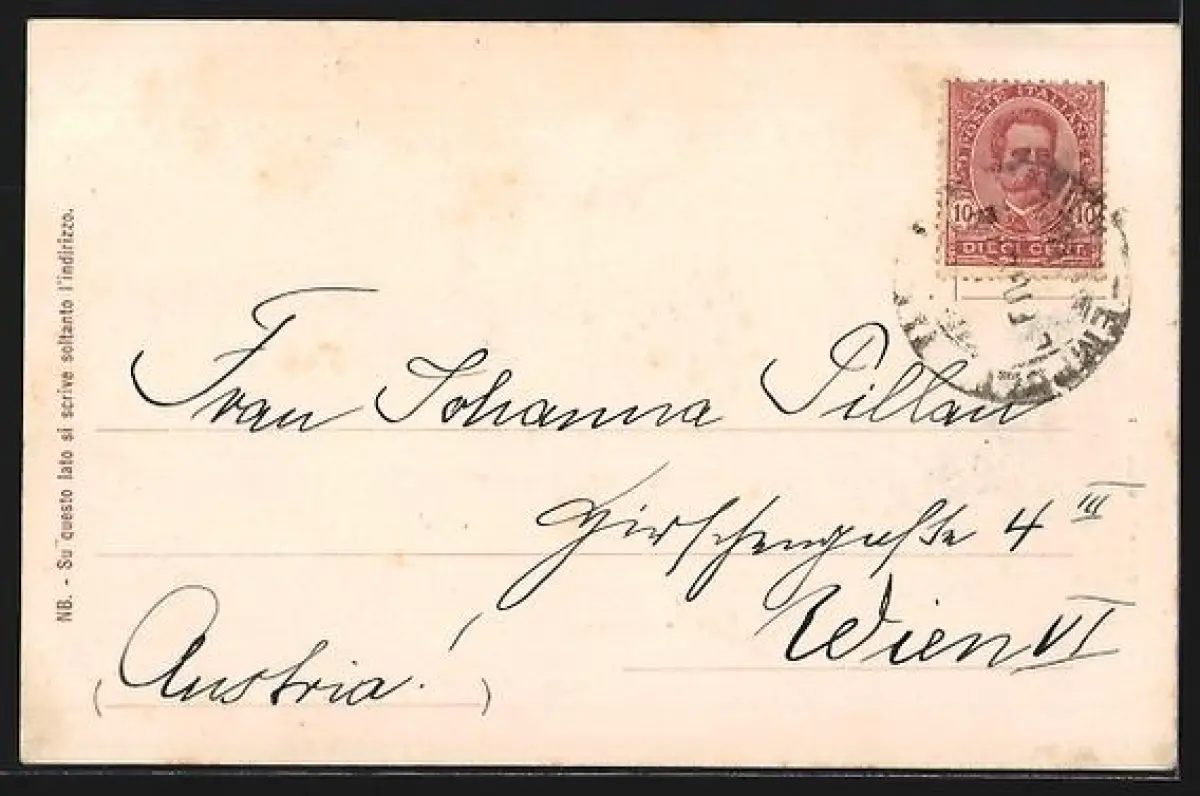 POSTE ITALIANE
10 10
DIECI CENT.
Frau Johanna Pillau
Hirschengasse 4 III
Wien VI
(Austria!)
NB. - Su questo lato si scrive soltanto l'indirizzo.